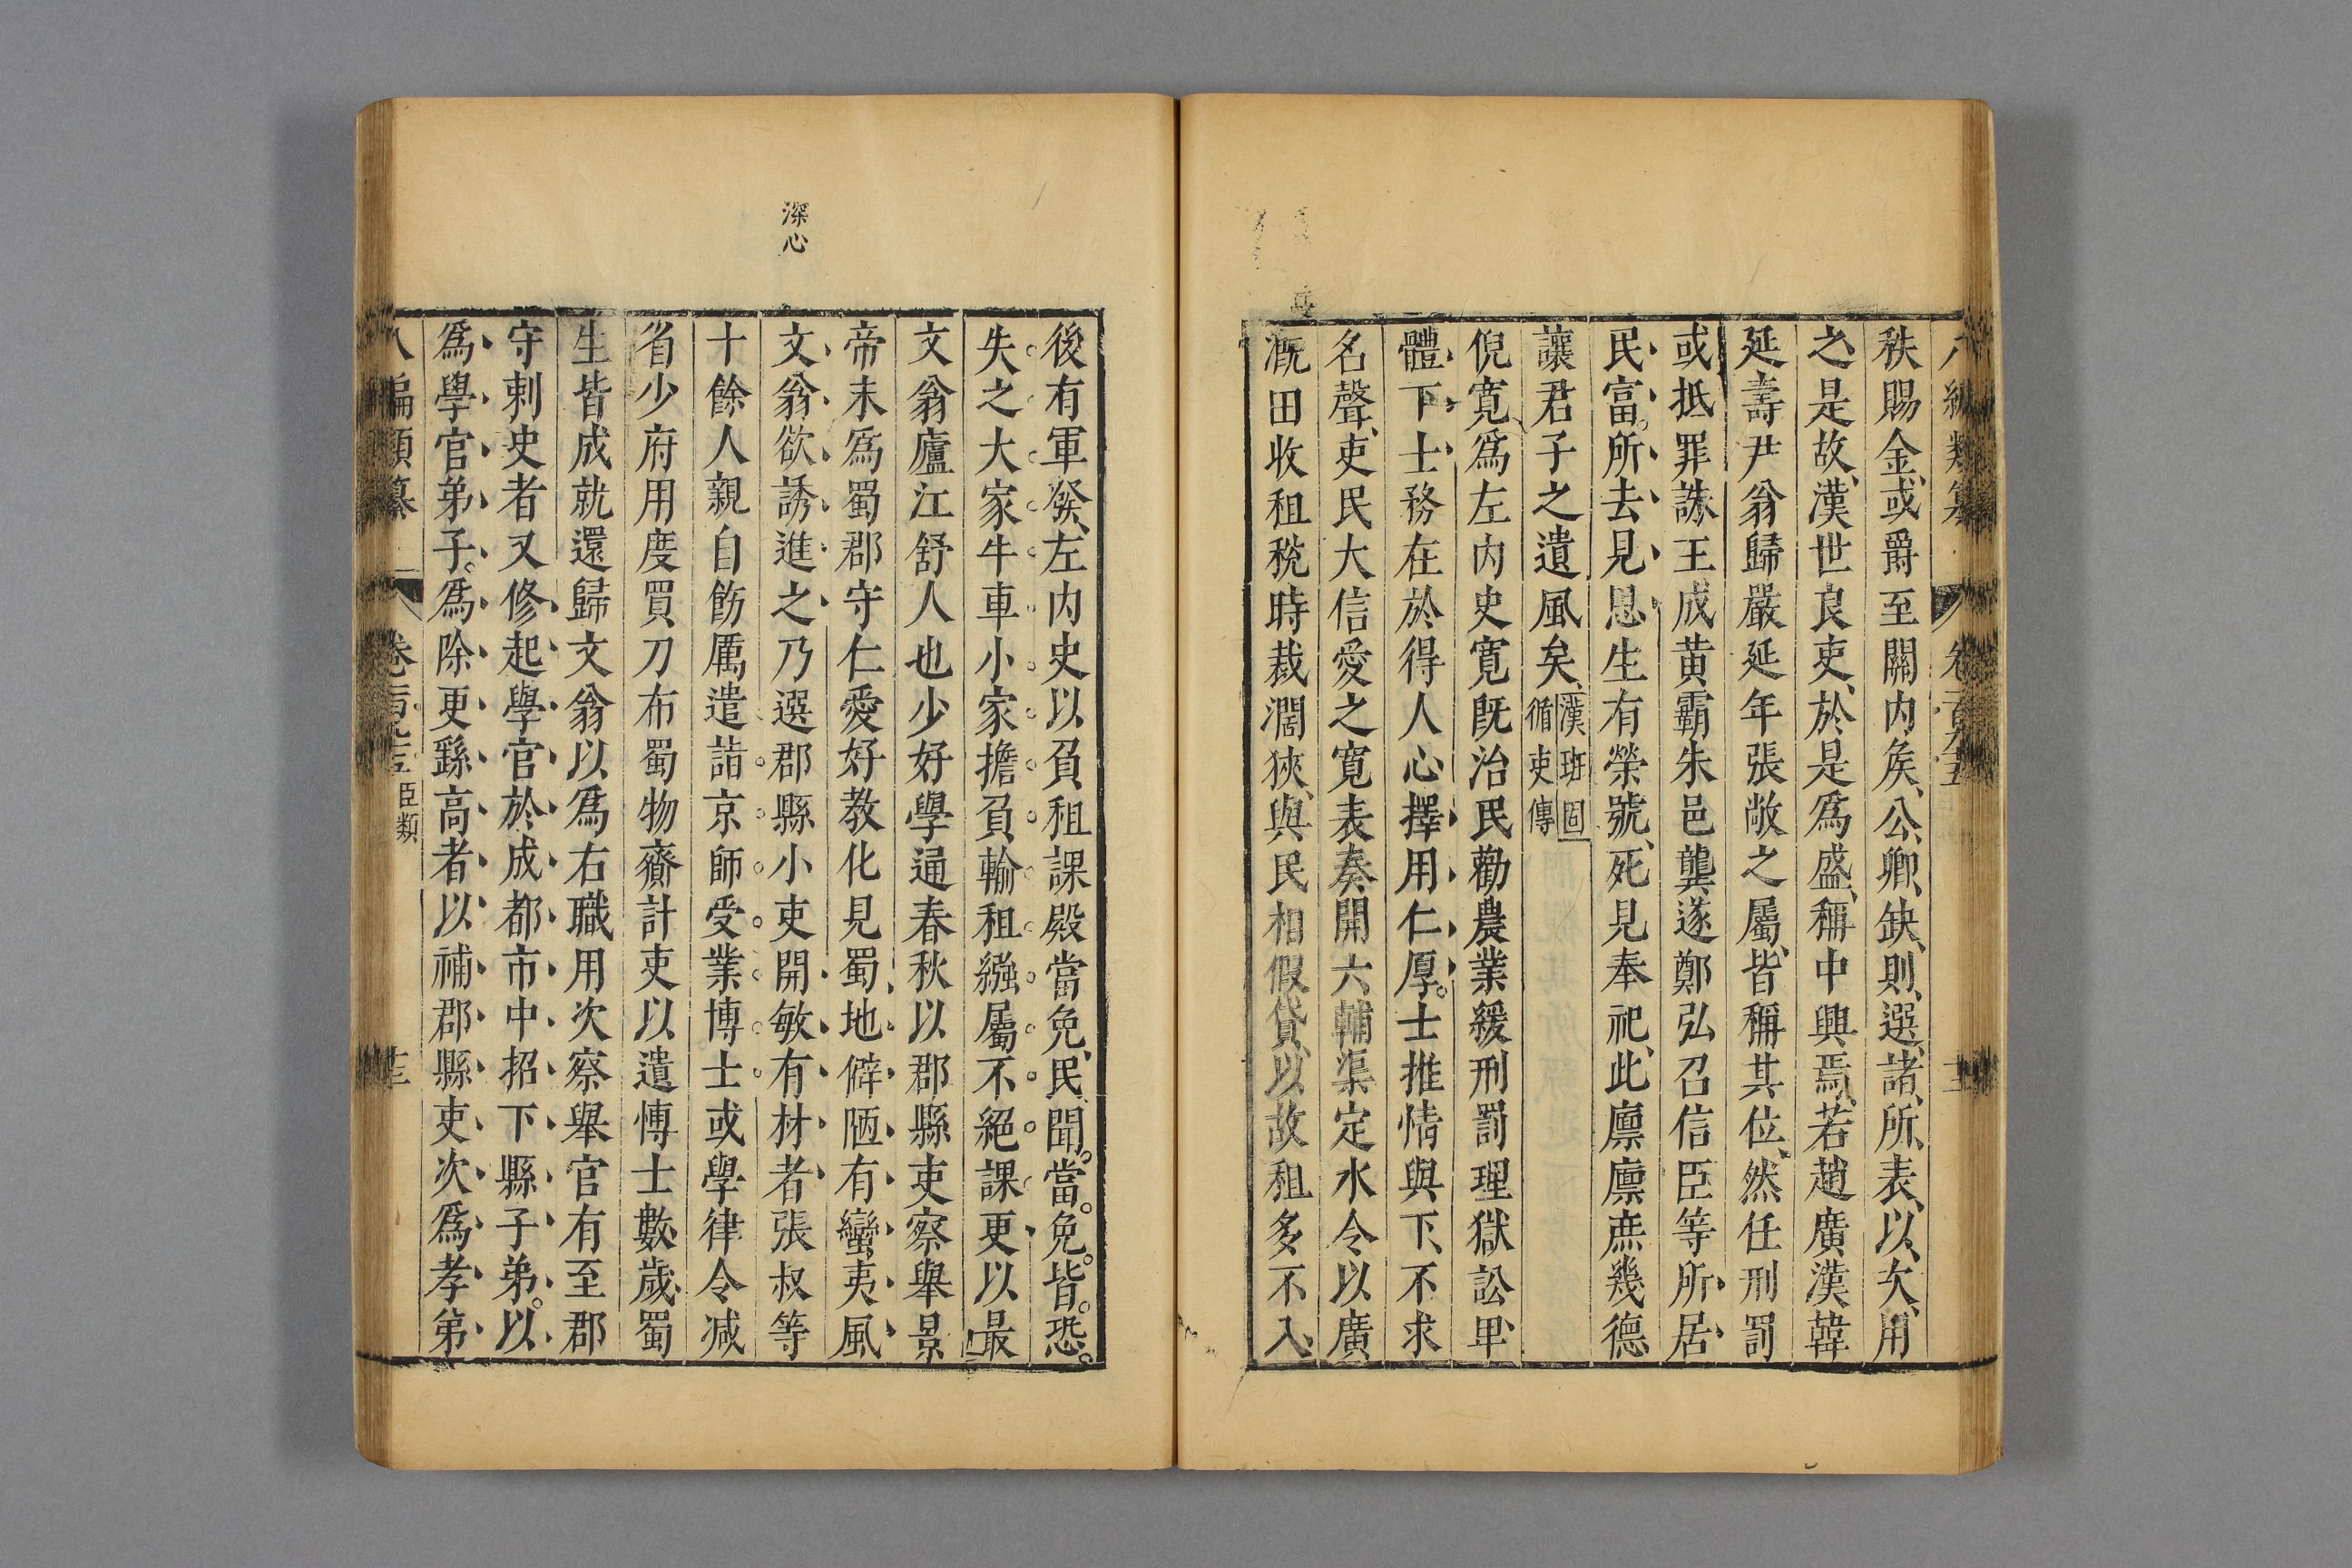 秩賜金或爵至關內矦公卿缺則選諸所表以次用
之是故漢世良吏於是爲盛稱中興焉若趙廣漢韓
延壽尹翁歸嚴延年張敞之屬皆稱其位然任刑罰
或抵罪誅王成黃霸朱邑龔遂鄭弘召信臣等所居
民富所去見思生有榮號死見奉祀此廩廩庶幾德
讓君子之遺風矣漢班固
循吏傳
倪寬爲左內史寬旣治民勸農業緩刑罰理獄訟畢
體下士務在於得人心擇用仁厚士推情與下不求
名聲吏民大信愛之寬表奏開六輔渠定水令以廣
漑田收租稅時裁濶狹與民相假貸以故租多不入
後有軍發左內史以負租課殿當免民聞當免皆恐
失之大家牛車小家擔負輸租繈屬不絕課更以最
文翁廬江舒人也少好學通春秋以郡縣吏察舉景
帝末爲蜀郡守仁愛好教化見蜀地僻陋有蠻夷風
深心
文翁欲誘進之乃選郡縣小吏開敏有材者張叔等
十餘人親自飭厲遣詣京師受業博士或學律令减
省少府用度買刀布蜀物齎計吏以遺博士數歲蜀
生皆成就還歸文翁以爲右職用次察舉官有至郡
守刺史者又修起學官於成都市中招下縣子弟以
爲學官弟子爲除更繇高者以補郡縣吏次爲孝弟
八編類纂
卷
臣類